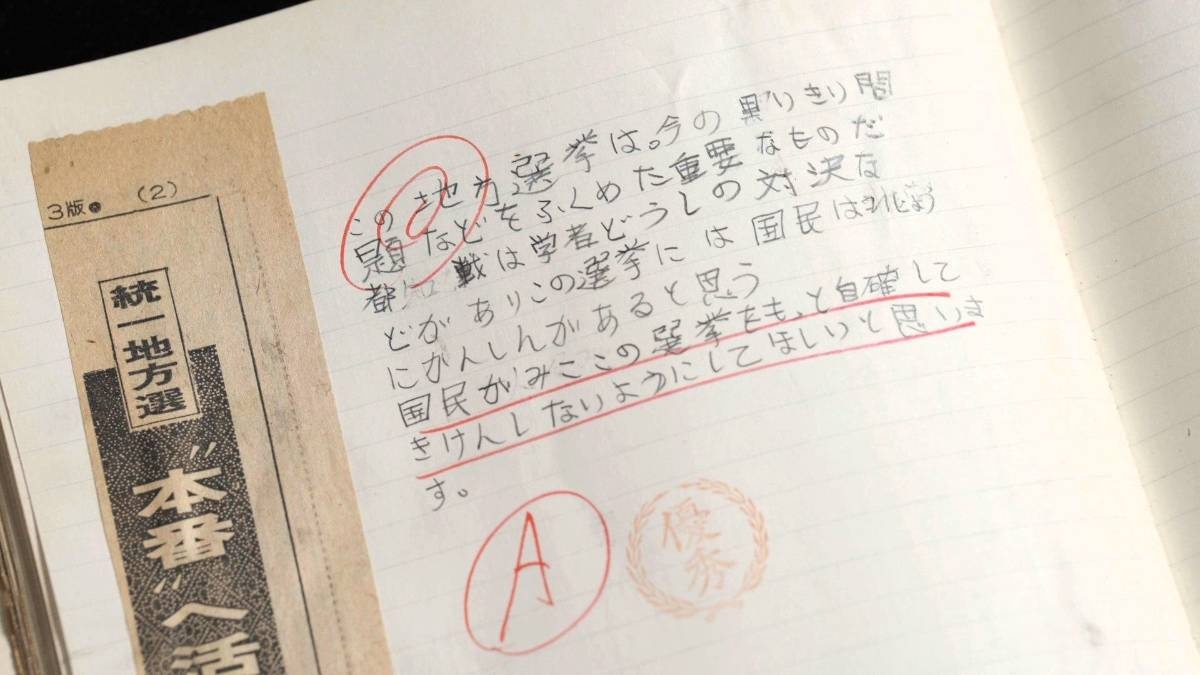 3版● (2)
統一地方選
“本番”へ活
この地方選挙は。今の黒いきり問
題などをふくめた重要なものだ
都知戦は学者どうしの対決な
どがありこの選挙には国民は
にかんしんがあると思う
国民がみここの選挙をも、と自確して
きけんしないようにしてほしいと思いま
す。
A
優秀